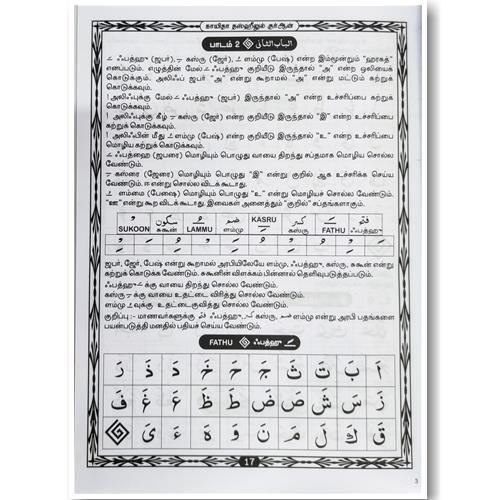 காயிதா தஸ்ஹீலுல் குர்ஆன்
பாடம் 2 الباب الثاني
ـَ ஃபத்ஹு (ஜபர்), ـِ கஸ்ரு (ஜேர்), ـُ ளம்மு (பேஷ்) என்ற இம்மூன்றும் "ஹரகத்"
எனப்படும். எழுத்தின் மேல் ஃபத்ஹு குறியீடு இருந்தால் "அ" என்ற ஒலியைக்
கொடுக்கும். அலிஃப் ஜபர் "அ" என்று கூறாமல் "அ" என்று மட்டும் கற்றுக்
கொடுக்கவும்.
! அலிஃபுக்கு மேல் ـَ ஃபத்ஹு (ஜபர்) இருந்தால் "அ" என்ற உச்சரிப்பை கற்றுக்
கொடுக்கவும்.
! அலிஃபுக்கு கீழ் ـِ கஸ்ரு (ஜேர்) என்ற குறியீடு இருந்தால் "இ" என்ற உச்சரிப்பை
கற்றுக் கொடுக்கவும்.
! அலிஃபின் மீது ـُ ளம்மு (பேஷ்) என்ற குறியீடு இருந்தால் "உ" என்ற உச்சரிப்பை
மொழிய கற்றுக் கொடுக்கவும்.
ـَ ஃபத்ஹை (ஜபரை) மொழியும் பொழுது வாயை திறந்து சப்தமாக மொழிய சொல்ல
வேண்டும்.
ـِ கஸ்ரை (ஜேரை) மொழியும் பொழுது "இ" என்று குறில் ஆக உச்சரிக்க செய்ய
வேண்டும். ஈ என்று சொல்ல விடக்கூடாது.
ـُ ளம்மை (பேஷை) மொழியும் பொழுது "உ" என்று மொழியச் சொல்ல வேண்டும்.
"ஊ" என்று கூற விடக்கூடாது. இவைகள் அனைத்தும் "குறில்" சப்தங்களாகும்.
سكون ضم KASRU كسر فتح
SUKOON சுகூன் LAMMU ளம்மு கஸ்ரு FATHU ஃபத்ஹு
ஜபர், ஜேர், பேஷ் என்று கூறாமல் அரபியிலேயே ளம்மு, ஃபத்ஹு, கஸ்ரு, சுகூன் என்று
கற்றுக் கொடுக்க வேண்டும். சுகூனின் விளக்கம் பின்னால் தெளிவுபடுத்தப்படும்.
ஃபத்ஹு ـَ க்கு வாயை திறந்து சொல்ல வேண்டும்.
கஸ்ரு ـِ க்கு வாயை உதட்டை விரித்து சொல்ல வேண்டும்.
ளம்மு ـُ வுக்கு உதட்டை குவித்து சொல்ல வேண்டும்.
குறிப்பு :- மாணவர்களுக்கு فتح ஃபத்ஹு كسر கஸ்ரு, ضم ளம்மு என்று அரபி பதங்களை
பயன்படுத்தி மனதில் பதியச் செய்ய வேண்டும்.
FATHU ஃபத்ஹு ـَ
اَ بَ تَ ثَ جَ حَ خَ دَ ذَ رَ
زَ سَ شَ صَ ضَ طَ ظَ عَ غَ فَ
قَ كَ لَ مَ نَ وَ هَ ءَ یَ
17
3